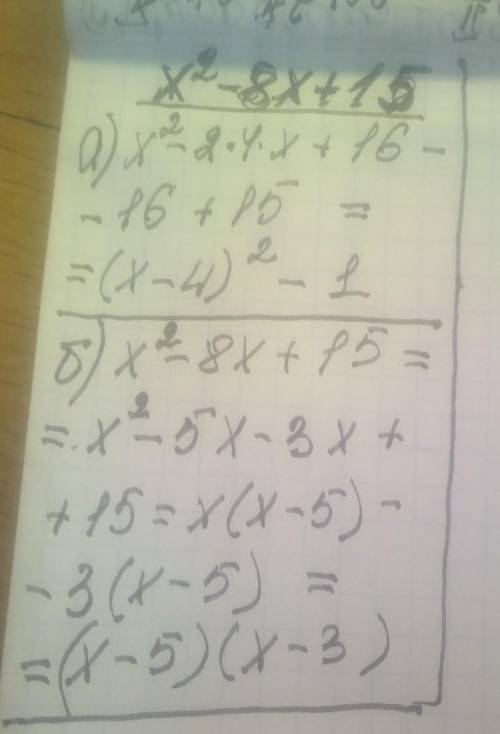 x² - 8x + 15
а) x² - 2·4·x + 16 -
- 16 + 15 =
= (x - 4)² - 1
б) x² - 8x + 15 =
= x² - 5x - 3x +
+ 15 = x(x - 5) -
- 3(x - 5) =
= (x - 5)(x - 3)